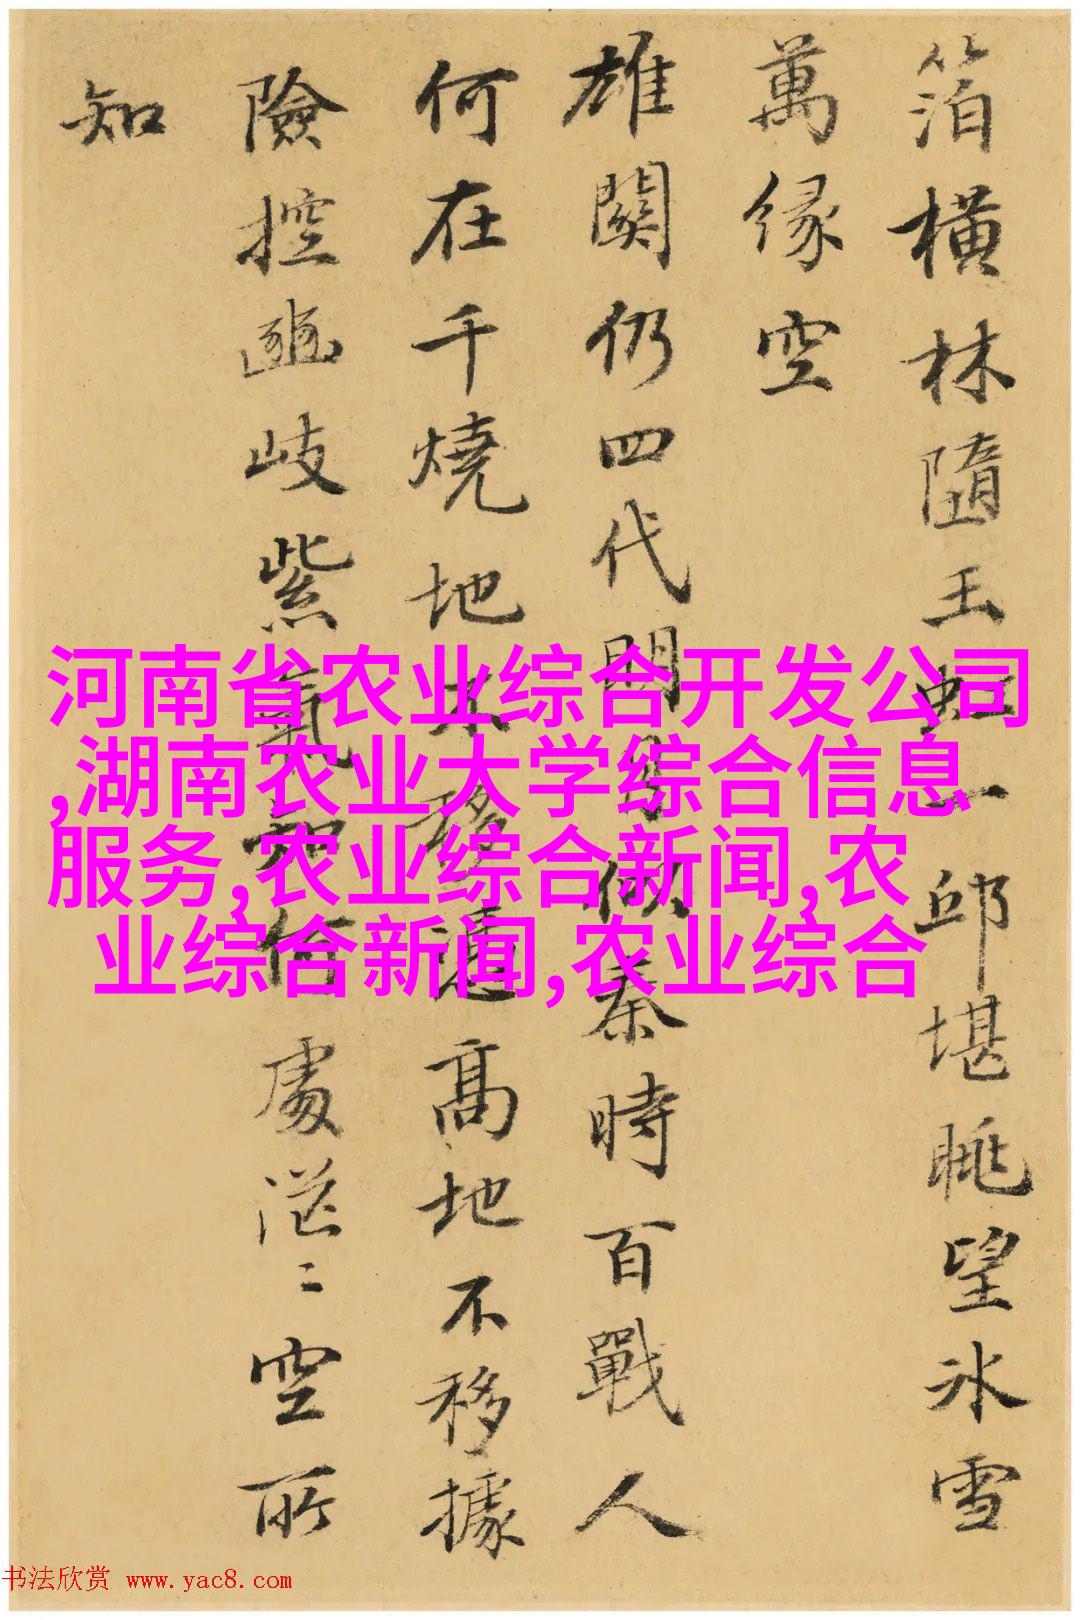 箔橫林隨玉虹一邱堪眺望冰雪
萬緣空
雄關仍四代開幷似秦時百戰人
何在千燒地不移憑高地不移據
險控豳岐紫氣知何處茫〻空所
知
河南省农业综合开发公司
,湖南农业大学综合信息
服务,农业综合新闻,农
业综合新闻,农业综合
书法欣赏 www.yac8.com